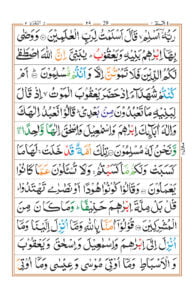 رَبُّهٗٓ اَسْلِمْ ۙ قَالَ اَسْلَمْتُ لِرَبِّ الْعٰلَمِيْنَ ۝ وَوَصّٰى
بِهَآ اِبْرٰهٖمُ بَنِيْهِ وَيَعْقُوْبُ ؕ يٰبَنِيَّ اِنَّ اللّٰهَ اصْطَفٰى
لَكُمُ الدِّيْنَ فَلَا تَمُوْتُنَّ اِلَّا وَاَنْتُمْ مُّسْلِمُوْنَ ۝ اَمْ
كُنْتُمْ شُهَدَآءَ اِذْ حَضَرَ يَعْقُوْبَ الْمَوْتُ ۙ اِذْ قَالَ
لِبَنِيْهِ مَا تَعْبُدُوْنَ مِنْۢ بَعْدِيْ ؕ قَالُوْا نَعْبُدُ اِلٰهَكَ
وَاِلٰهَ اٰبَآئِكَ اِبْرٰهٖمَ وَاِسْمٰعِيْلَ وَاِسْحٰقَ اِلٰهًا وَّاحِدًا
وَّنَحْنُ لَهٗ مُسْلِمُوْنَ ۝ تِلْكَ اُمَّةٌ قَدْ خَلَتْ ۚ لَهَا مَا
كَسَبَتْ وَلَكُمْ مَّا كَسَبْتُمْ ۚ وَلَا تُسْـَٔلُوْنَ عَمَّا كَانُوْا
يَعْمَلُوْنَ ۝ وَقَالُوْا كُوْنُوْا هُوْدًا اَوْ نَصٰرٰى تَهْتَدُوْا
قُلْ بَلْ مِلَّةَ اِبْرٰهٖمَ حَنِيْفًا ؕ وَمَا كَانَ مِنَ
الْمُشْرِكِيْنَ ۝ قُوْلُوْٓا اٰمَنَّا بِاللّٰهِ وَمَآ اُنْزِلَ اِلَيْنَا وَمَآ
اُنْزِلَ اِلٰٓى اِبْرٰهٖمَ وَاِسْمٰعِيْلَ وَاِسْحٰقَ وَيَعْقُوْبَ
وَالْاَسْبَاطِ وَمَآ اُوْتِيَ مُوْسٰى وَعِيْسٰى وَمَآ اُوْتِيَ